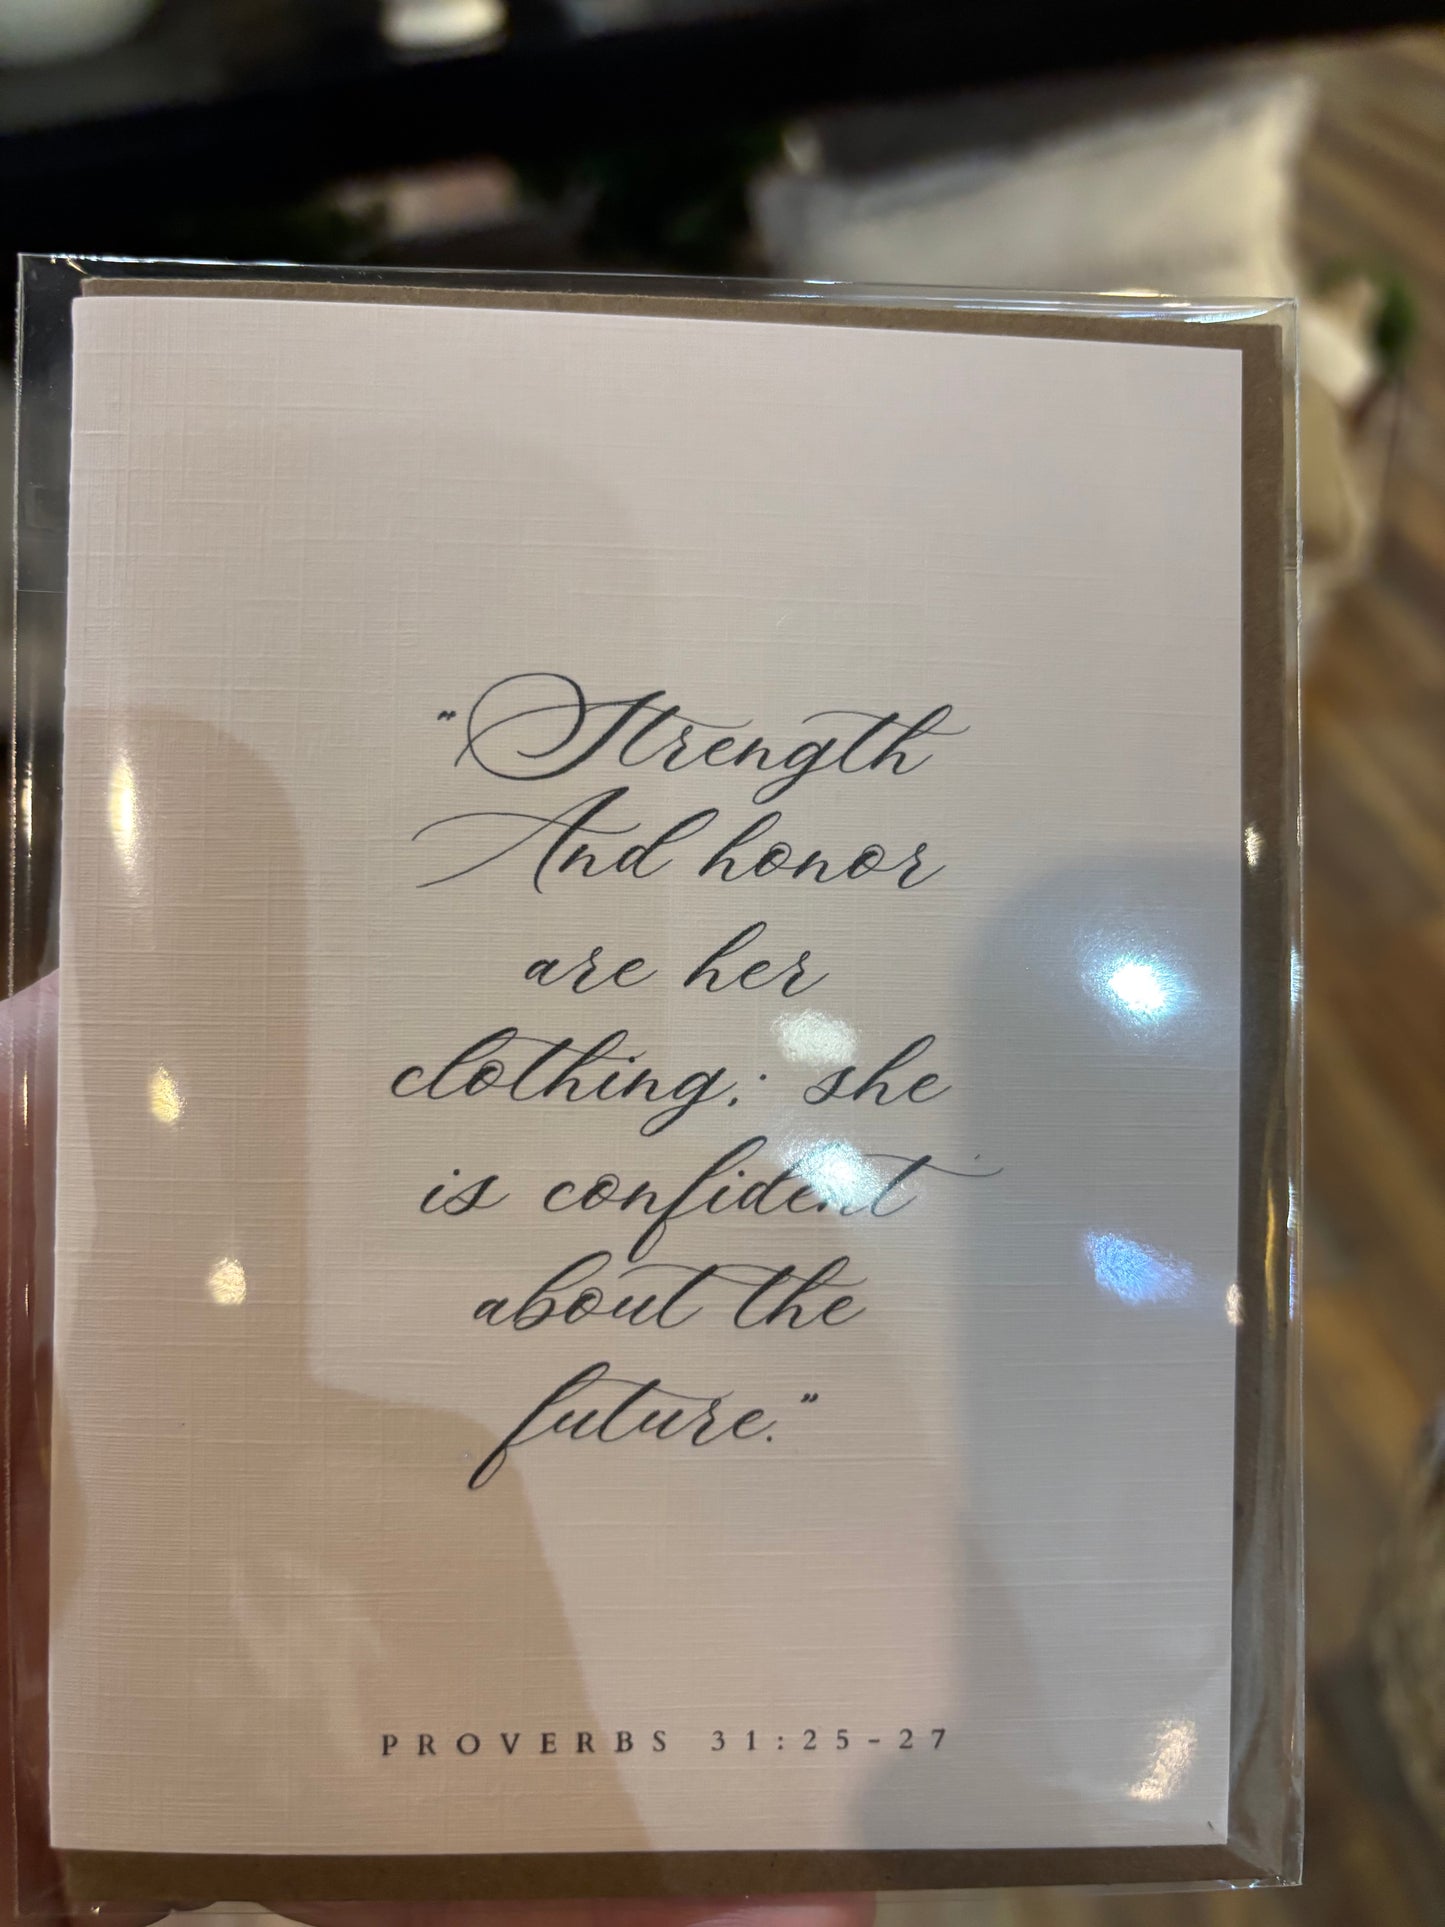 "Strength
And honor
are her
clothing; she
is confident
about the
future."
PROVERBS 31:25-27